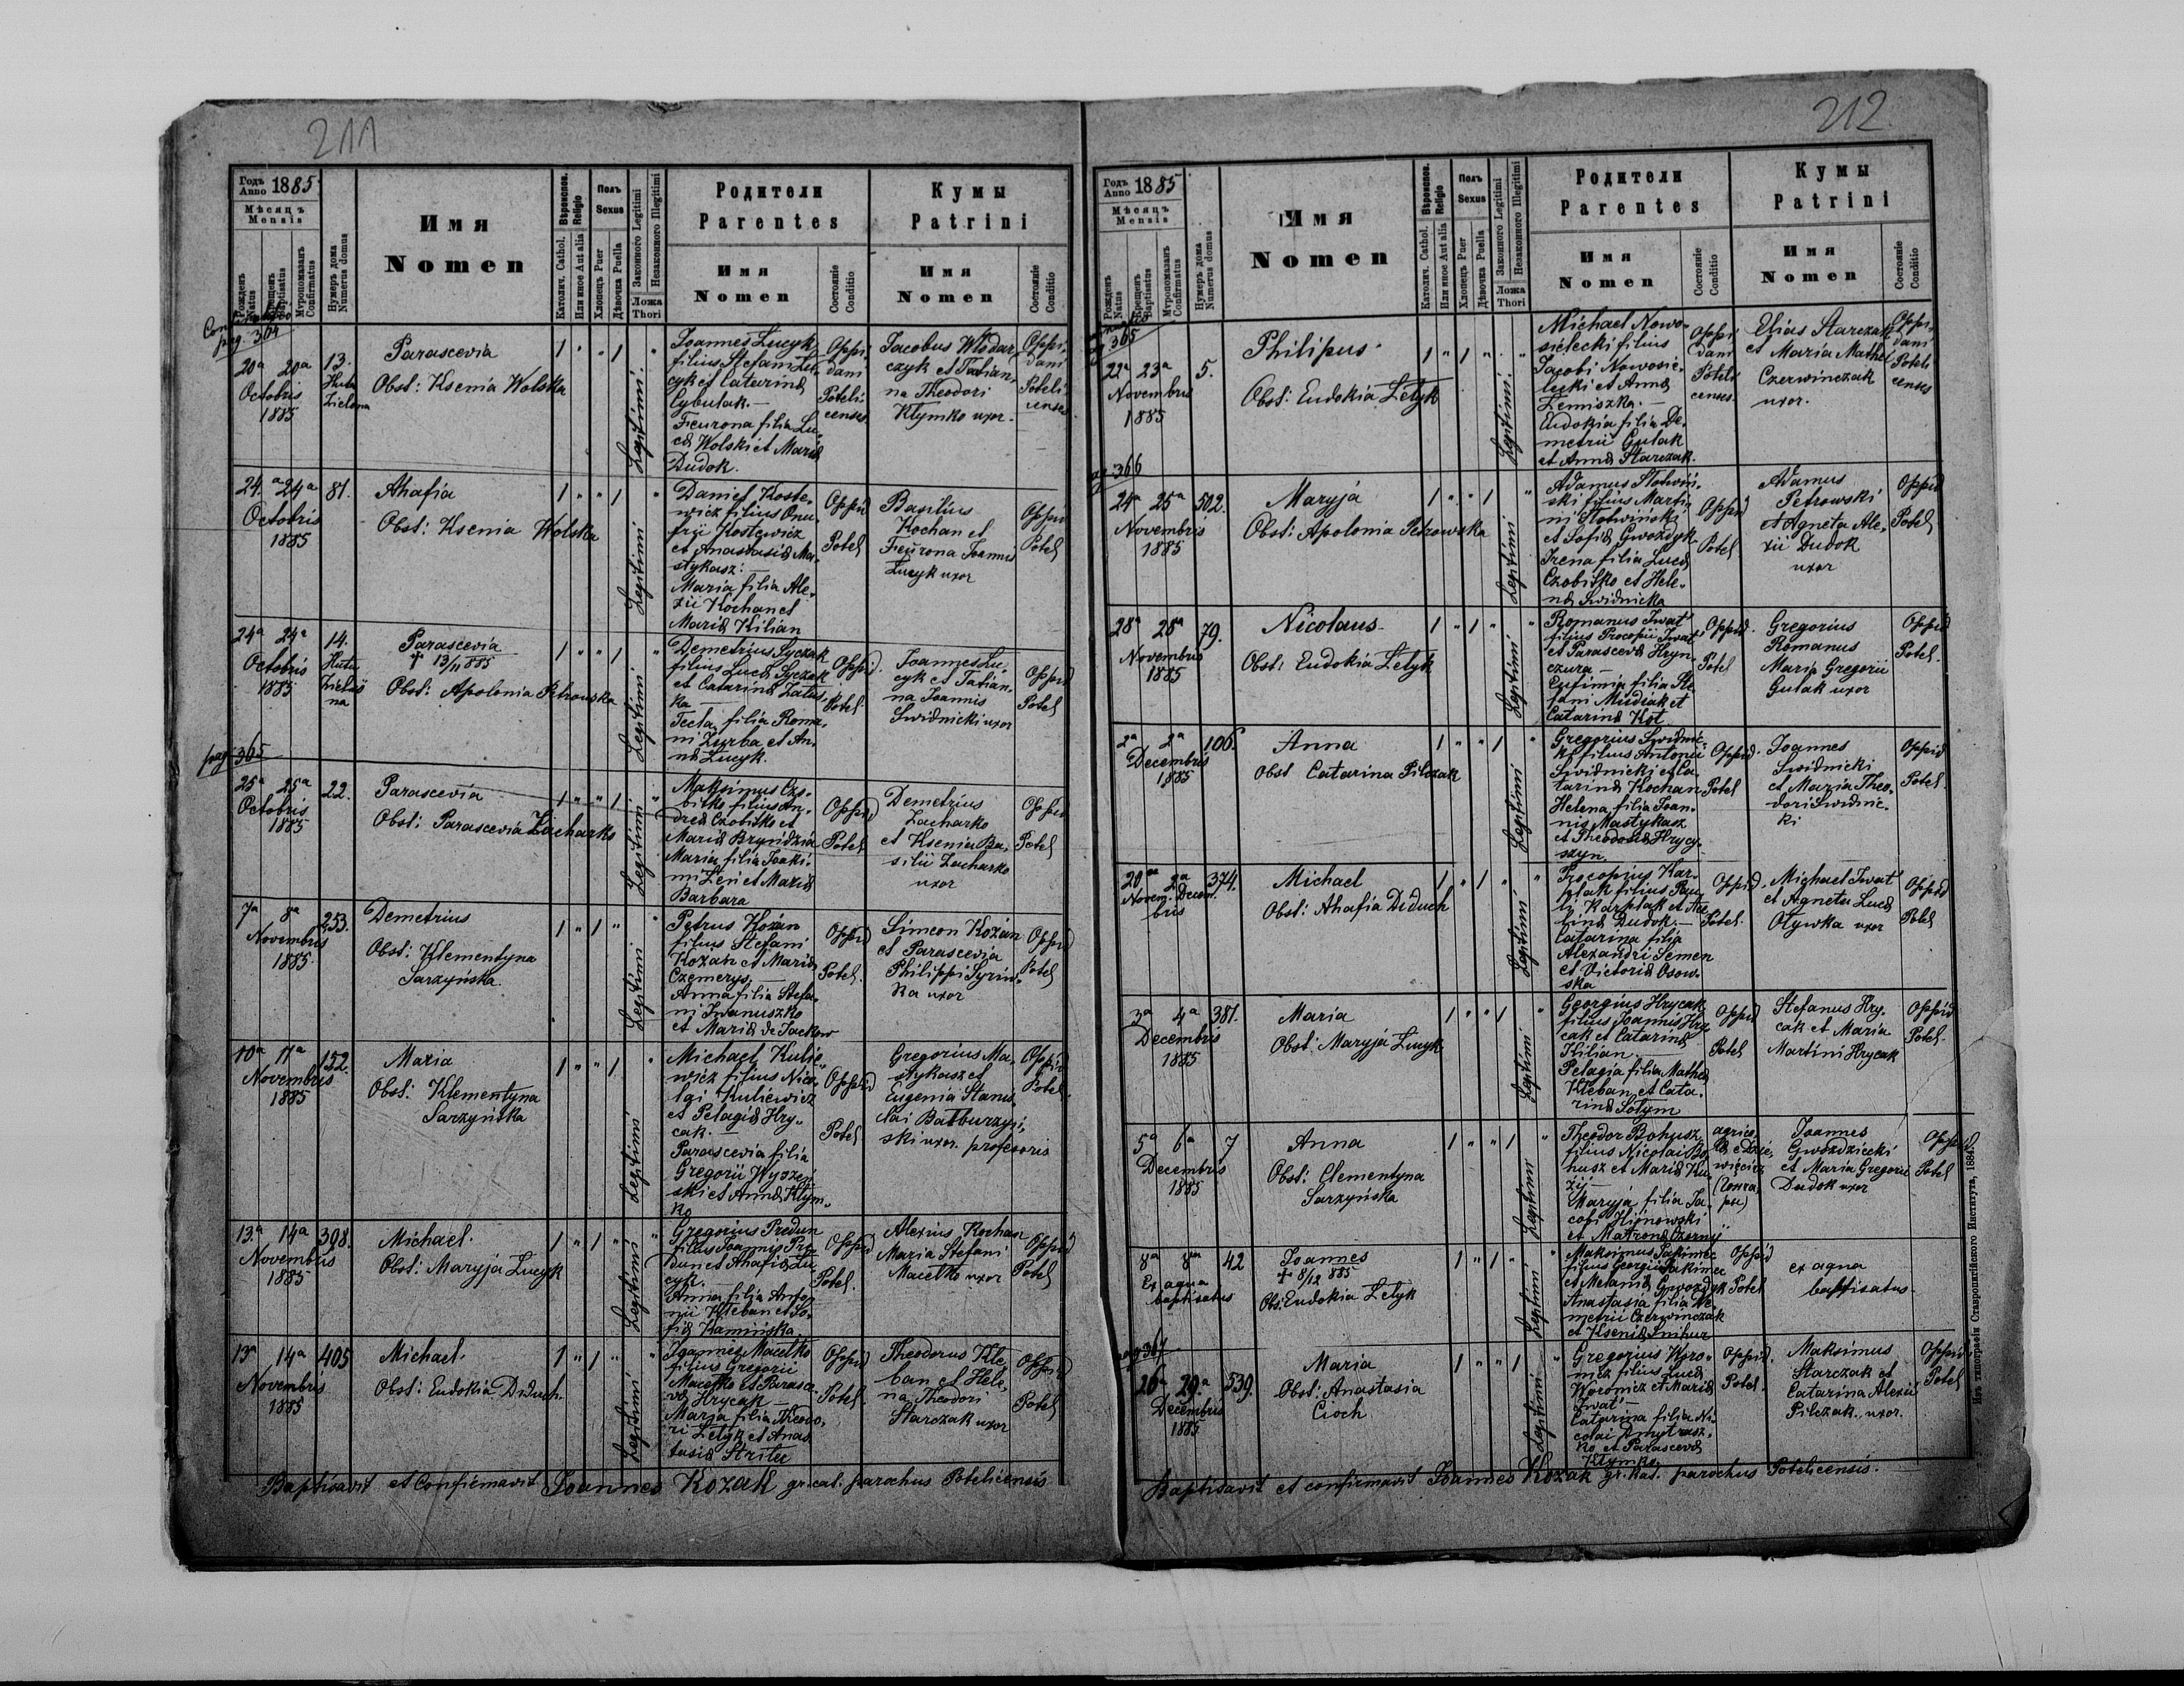 211
Годъ Anno 1885
Мѣсяцъ
Mensis
Рожденъ Natus
Крещенъ Baptisatus
Мѵропомазанъ Confirmatus
Нумеръ дома Numerus domus
Имя
Nomen
Вѣроиспов. Religio
Католич. Cathol.
Или иное Aut alia
Полъ
Sexus
Хлопецъ Puer
Дѣвочка Puella
Законного Legitimi
Незаконного Illegitimi
Ложа
Thori
Родители
Parentes
Имя
Nomen
Состояніе
Conditio
Кумы
Patrini
Имя
Nomen
Состояніе
Conditio
pag. 364
20a 20a
Octobris
1885
13.
Huta
Zielona
Parascevia
Obst: Ksenia Wolska
1 " " 1
Legitimi
Joannes Lucyk
filius Stefani Lu-
cyk et Catarina
Cybulak.—
Feurona filia Lu-
ca Wolski et Maria
Dudok.
Oppi-
dani
Poteli-
censes
Jacobus Wlodar-
czyk et Tatian-
na Theodori
Klymko uxor.
Oppi-
dani
Poteli-
censes
24.a 24a
Octobris
1885
81.
Ahafia
Obst: Ksenia Wolska
1 " " 1
Legitimi
Daniel Koste-
wicz filius Onu-
frii Kostewicz
et Anastasia Ma-
stykasz.—
Maria filia Ale-
xii Kochan et
Maria Kilian
Oppid
Potel
Basilius
Kochan et
Feurona Joannis
Lucyk uxor
Oppid
Potel
24a 24a
Octobris
1885
14.
Huta
Zielo-
na
Parascevia
† 13/11 885
Obst: Apolonia Petrowska
1 " " 1
Legitimi
Demetrius Syczak
filius Luca Syczak
et Catarina Zatus-
ka —
Tecla filia Roma-
ni Zurba et An-
na Lucyk.
Oppid.
Potel
Joannes Lu-
cyk et Tatian-
na Joannis
Swidnicki uxor
Oppid
Potel
pag 365
25a 25a
Octobris
1885
22.
Parascevia
Obst: Parascevia Zacharko
1 " " 1
Legitimi
Maksimus Czo-
bitko filius An-
drea Czobitko et
Maria Bryndzia
Maria filia Joaki-
mi Zen et Maria
Barbara
Oppid
Potel
Demetrius
Zacharko
et Ksenia Ba-
silii Zacharko
uxor
Oppid
Potel
7a 8a
Novembris
1885.
253.
Demetrius
Obst: Klementyna
Sarzyńska
1 " 1 "
Legitimi
Petrus Kozan
filius Stefani
Kozan et Maria
Czemerys.—
Anna filia Stefa-
ni Iwanuszko
et Maria de Jackow
Oppid
Potel.
Simeon Kozan
et Parascevia
Philippi Syrin-
ka uxor
Oppid
Potel
10a 11a
Novembris
1885
152.
Maria
Obst: Klementyna
Sarzyńska
1 " " 1
Legitimi
Michael Kulie-
wicz filius Nico-
lai Kuliewicz
et Pelagia Hry-
cak.—
Parascevia filia
Gregorii Wyszen-
ski et Anna Klym-
ko
Oppid
Potel
Gregorius Ma-
stykasz et
Eugenia Stanis-
lai Batburzyń-
ski uxor. profesoris
Oppid
Potel.
13.a 14a
Novembris
1885
398.
Michael.
Obst: Maryja Lucyk
1 " 1 "
Legitimi
Gregorius Predun
filius Joannis Pre-
dun et Ahafia Lu-
cyk.—
Anna filia Anto-
nii Kleban et So-
fia Kaminska
Oppid
Potel.
Alexius Kochan
Maria Stefani
Macelko uxor
Oppid
Potel
13a 14a
Novembris
1885
405
Michael.
Obst: Eudokia Diduch.
1 " 1 "
Legitimi
Joannes Macelko
filius Gregorii
Macelko et Parasce-
va Hrycak —
Maria filia Theodo-
ri Letyk et Anas-
tasia Stritee
Oppid
Potel.
Theodorus Kle-
ban et Hele-
na Theodori
Starczak uxor
Oppid
Potel
Baptisavit et Confirmavit Joannes Kozak gr. cat. parochus Potelicensis
212
Годъ Anno 1885
Мѣсяцъ
Mensis
Рожденъ Natus
Крещенъ Baptisatus
Мѵропомазанъ Confirmatus
Нумеръ дома Numerus domus
Имя
Nomen
Вѣроиспов. Religio
Католич. Cathol.
Или иное Aut alia
Полъ
Sexus
Хлопецъ Puer
Дѣвочка Puella
Законного Legitimi
Незаконного Illegitimi
Ложа
Thori
Родители
Parentes
Имя
Nomen
Состояніе
Conditio
Кумы
Patrini
Имя
Nomen
Состояніе
Conditio
365
22a 23a
Novembris
1885
5.
Philipus
Obst: Eudokia Letyk
1 " 1 "
Legitimi
Michael Nowo-
sielecki filius
Jacobi Nowosie-
lecki et Anna
Zemiszka.—
Eudokia filia De-
metrii Gulak
et Anna Starczak.
Oppi-
dani
Poteli-
censes
Elias Starczak
et Maria Mathei
Czerwinczak
uxor.
Oppi-
dani
Poteli-
censes
366
24a 25a
Novembris
1885
502.
Maryja
Obst: Apolonia Petrowska
1 " " 1
Legitimi
Adamus Slotwin-
ski filius Marti-
ni Slotwinski
et Sofia Gwozdyk
Irena filia Luca
Czobitko et Hele-
na Swidnicka
Oppid
Potel
Adamus
Petrowski
et Agneta Ale-
xii Dudok
uxor
Oppid
Potel
28a 28a
Novembris
1885
79.
Nicolaus
Obst: Eudokia Letyk
1 " 1 "
Legitimi
Romanus Iwat
filius Procopii Iwat
et Parasceva Hryn-
czura —
Eufimia filia Ste-
fani Musiak et
Catarina Kot
Oppid.
Potel
Gregorius
Romanus
Maria Gregorii
Gulak uxor
Oppid
Potel.
2a 2a
Decembris
1885
106.
Anna
Obst Catarina Pilczak
1 " " 1
Legitimi
Gregorius Swidnic-
ki filius Antonii
Swidnicki et Ca-
tarina Kochan
Helena filia Joan-
nis Mastykasz
et Theodora Hrycy-
szyn
Oppid.
Potel
Joannes
Swidnicki
et Maria Theo-
dori Swidnic-
ki
Oppid
Potel.
29a 2a
Novem- Decem-
bris
374.
Michael
Obst: Ahafia Diduch
1 " 1 "
Legitimi
Procopius Kar-
plak filius Pau-
li Karplak et Ake-
lina Dudok.—
Catarina filia
Alexandri Semen
et Victoria Osow-
ska
Oppid.
Potel.
Michael Iwat
et Agneta Luca
Olywka uxor
Oppid
Potel
3a 4a
Decembris
1885
381.
Maria
Obst. Maryja Lucyk
1 " " 1
Legitimi
Georgius Hrycak
filius Joannis Hry-
cak et Catarina
Kilian.—
Pelagia filia Mathei
Kleban et Cata-
rina Solym
Oppid
Potel
Stefanus Hry-
cak et Maria
Martini Hrycak
Oppid
Potel.
5a 6a
Decembris
1885
7
Anna
Obst: Clementyna
Sarzyńska
1 " " 1
Legitimi
Theodor Bohusz
filius Nicolai Bo-
husz et Maria Ku-
zij —
Maryja filia Ja-
cobi Hijnowski
et Matrona Czornij
Joannes
Gwozdziecki
et Maria Gregorii
Dudok uxor
Oppid
Potel
8a 8a
Ex aqua
baptisatus
42
Joannes
† 8/12 885
Obs: Eudokia Letyk
1 " 1 "
Legitimi
Maksimus Jakimec
filius Georgii Jakimec
et Melania Gwozdyk
Anastasia filia De-
metrii Czerwinczak
et Ksenia Snihur
Oppid
Potel
ex aqua
baptisatus.
367
26a 29.a
Decembris
1885
539.
Maria
Obst: Anastasia
Cioch
1 " " 1
Legitimi
Gregorius Woro-
nicz filius Luca
Woronicz et Maria
Iwat —
Catarina filia Ni-
colai Dmytrasz-
ko et Parasceva
Klymko
Oppid.
Potel.
Maksimus
Starczak et
Catarina Alexii
Pilczak. uxor.
Oppid
Potel
Baptisavit et confirmavit Joannes Kozak gr. kat. parochus Potelicensis.
Изъ типографіи Ставропигійского Института, 1884.